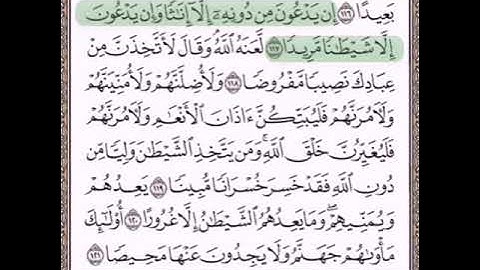 بَعِيدًا ﴿١١٦﴾ إِن يَدْعُونَ مِن دُونِهِۦٓ إِلَّآ إِنَٰثًا وَإِن يَدْعُونَ
إِلَّا شَيْطَٰنًا مَّرِيدًا ﴿١١٧﴾ لَّعَنَهُ ٱللَّهُ وَقَالَ لَأَتَّخِذَنَّ مِنْ
عِبَادِكَ نَصِيبًا مَّفْرُوضًا ﴿١١٨﴾ وَلَأُضِلَّنَّهُمْ وَلَأُمَنِّيَنَّهُمْ
وَلَءَامُرَنَّهُمْ فَلَيُبَتِّكُنَّ ءَاذَانَ ٱلْأَنْعَٰمِ وَلَءَامُرَنَّهُمْ
فَلَيُغَيِّرُنَّ خَلْقَ ٱللَّهِ ۚ وَمَن يَتَّخِذِ ٱلشَّيْطَٰنَ وَلِيًّا مِّن
دُونِ ٱللَّهِ فَقَدْ خَسِرَ خُسْرَانًا مُّبِينًا ﴿١١٩﴾ يَعِدُهُمْ
وَيُمَنِّيهِمْ ۖ وَمَا يَعِدُهُمُ ٱلشَّيْطَٰنُ إِلَّا غُرُورًا ﴿١٢٠﴾ أُو۟لَٰٓئِكَ
مَأْوَىٰهُمْ جَهَنَّمُ وَلَا يَجِدُونَ عَنْهَا مَحِيصًا ﴿١٢١﴾